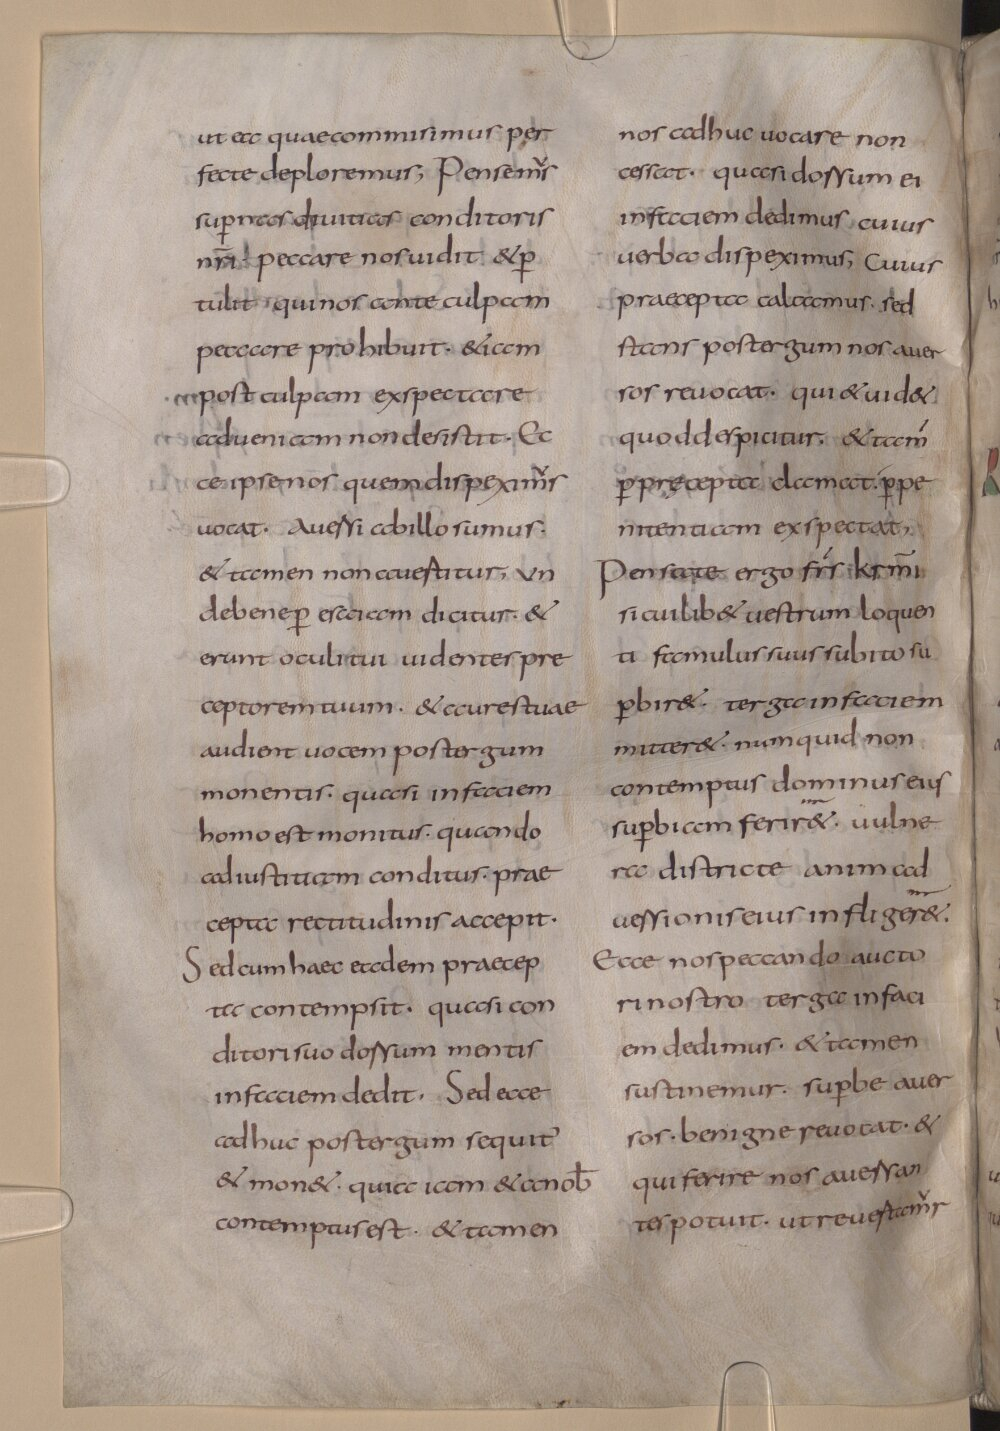 ut ea quae commisimus per
fecte deploremus; Pensem̄s
sup̄nas divitias conditoris
nr̄i peccare nos uidit & p̄
tulit qui nos ante culpam
peccare prohibuit. & iam
post culpam exspectare
ad ueniam non desistit. Ec
ce ipse nos quem dispexim̄s
uocat. auersi ab illo sumus.
& tamen non auertitur; Vn
de bene p̄ esaiam dicitur. &
erunt oculi tui uidentes pre
ceptorem tuum. & aures tuae
audient uocem post tergum
monentis. quasi in faciem
homo est monitus. quando
ad iustitiam conditus. prae
cepta rectitudinis accepit.
Sed cum haec eadem praecep
ta contempsit. quasi con
ditori suo dorsum mentis
in faciem dedit. Sed ecce
adhuc post tergum sequit̄
& mon&. quia iam & a nob̄
contemptus est. & tamen
nos adhuc uocare non
cessat. quasi dorsum ei
in faciem dedimus cuius
uerba dispeximus; Cuius
praecepta calcamus. sed
stans post tergum nos auer
sos reuocat. qui & uid&
quod despicitur. & tam̄
p̄ precepta clamat. p̄ pe
nitentiam exspectat;
Pensate ergo fr̄s kr̄mi
si cuilib& uestrum loquen
ti famulus suus subito su
p̄bir&. terga in faciem
mitter&. numquid non
contemptus dominus eius
sup̄biam ferir&. uulne
ra districte animad
uersionis eius infliger&.
Ecce nos peccando aucto
ri nostro terga in faci
em dedimus. & tamen
sustinemur. sup̄be auer
sos. benigne reuocat. &
qui ferire nos auersan
tes potuit. ut reuertam̄r